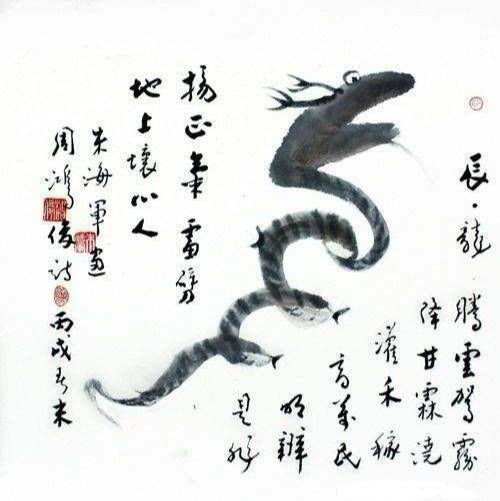 辰·龍
騰雲駕霧
降甘霖澆
灌禾稼
育萬民
明辨
是非
揚正氣雷劈
地上壞心人
朱海軍画
周鴻俊詩丙戌春末